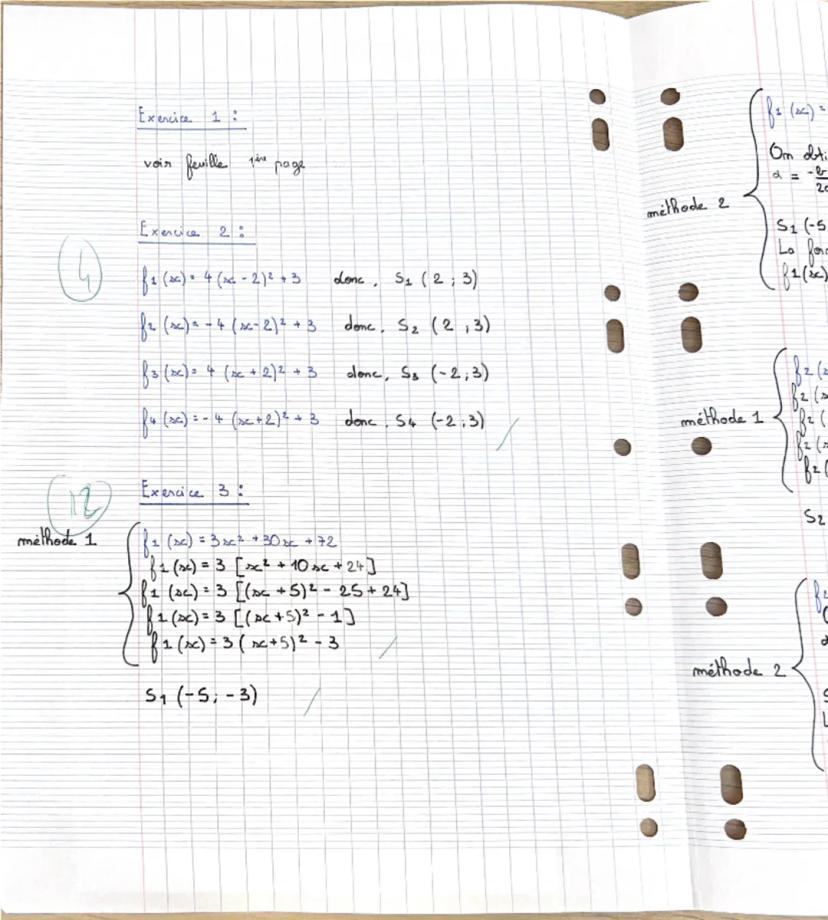 Exercice 1 :
voir feuille 1ère page
Exercice 2 :
4
f1(x) = 4(x - 2)² + 3 donc, S1 (2 ; 3)
f2(x) = - 4 (x - 2)² + 3 donc, S2 (2 ; 3)
f3(x) = 4 (x + 2)² + 3 donc, S3 (-2 ; 3)
f4(x) = - 4 (x+2)² + 3 donc, S4 (-2 ; 3)
12
Exercice 3 :
méthode 1
f1(x) = 3x² + 30x + 72
f1(x) = 3 [x² + 10x + 24]
f1(x) = 3 [(x + 5)² - 25 + 24]
f1(x) = 3 [(x+5)² - 1]
f1(x) = 3 (x+5)² - 3
S1 (-5 ; -3)
méthode 2
f1(x) =
On
α =
S1 (-5
La
f1(x)
méthode 1
f2(
f2(
f2(
f2(
f2(
S2
méthode 2